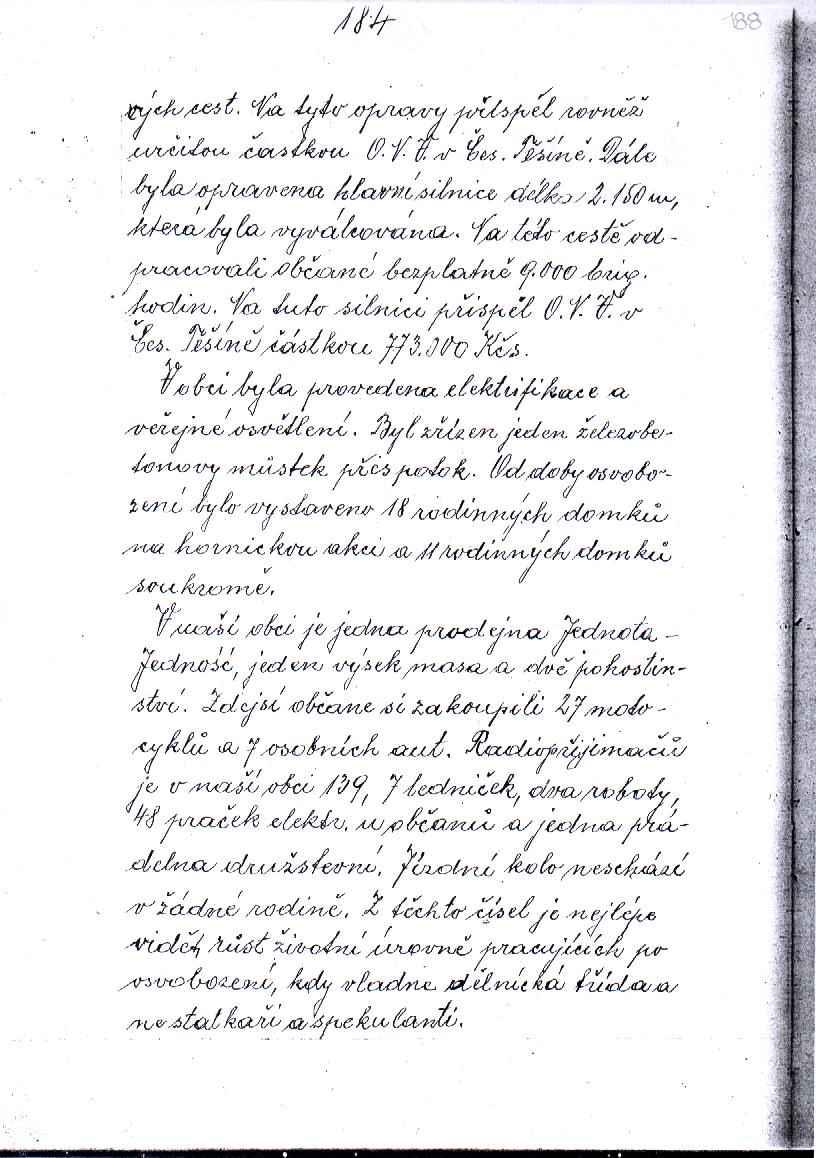 184
188
vých cest. Na tyto opravy přispěl rovněž
určitou častkou O.N.V. v Čes. Těšíně. Dále
byla opravena hlavní silnice délka 2.150 m,
která byla vyválcována. Na této cestě od-
pracovali občané bezplatně 9.000 brig.
hodin. Na tuto silnici přispěl O.N.V. v
Čes. Těšíně částkou 773.000 Kčs.
V obci byla provedena elektrifikace a
veřejné osvětlení. Byl zřízen jeden železobe-
tonovy můstek přes potok. Od doby osvobo-
zení bylo vystaveno 18 rodinných domků
na hornickou akci a 11 rodinných domků
soukromě.
V naší obci je jedna prodejna Jednota-
Jedność, jeden výsek masa a dvě pohostin-
ství. Zdejsí občane si zakoupili 27 moto-
cyklů a 7 osobních aut. Radiopřijimačů
je v naší obci 139, 7 ledniček, dva roboty,
48 praček elektr. u občanů a jedna prá-
delna družstevní. Jízdní kolo neschází
v žádné rodině. Z těchto čísel je nejlépe
vidět růst životní úrovně pracujících po
osvobození, kdy vladne dělnická třída a
ne statkaři a spekulanti.